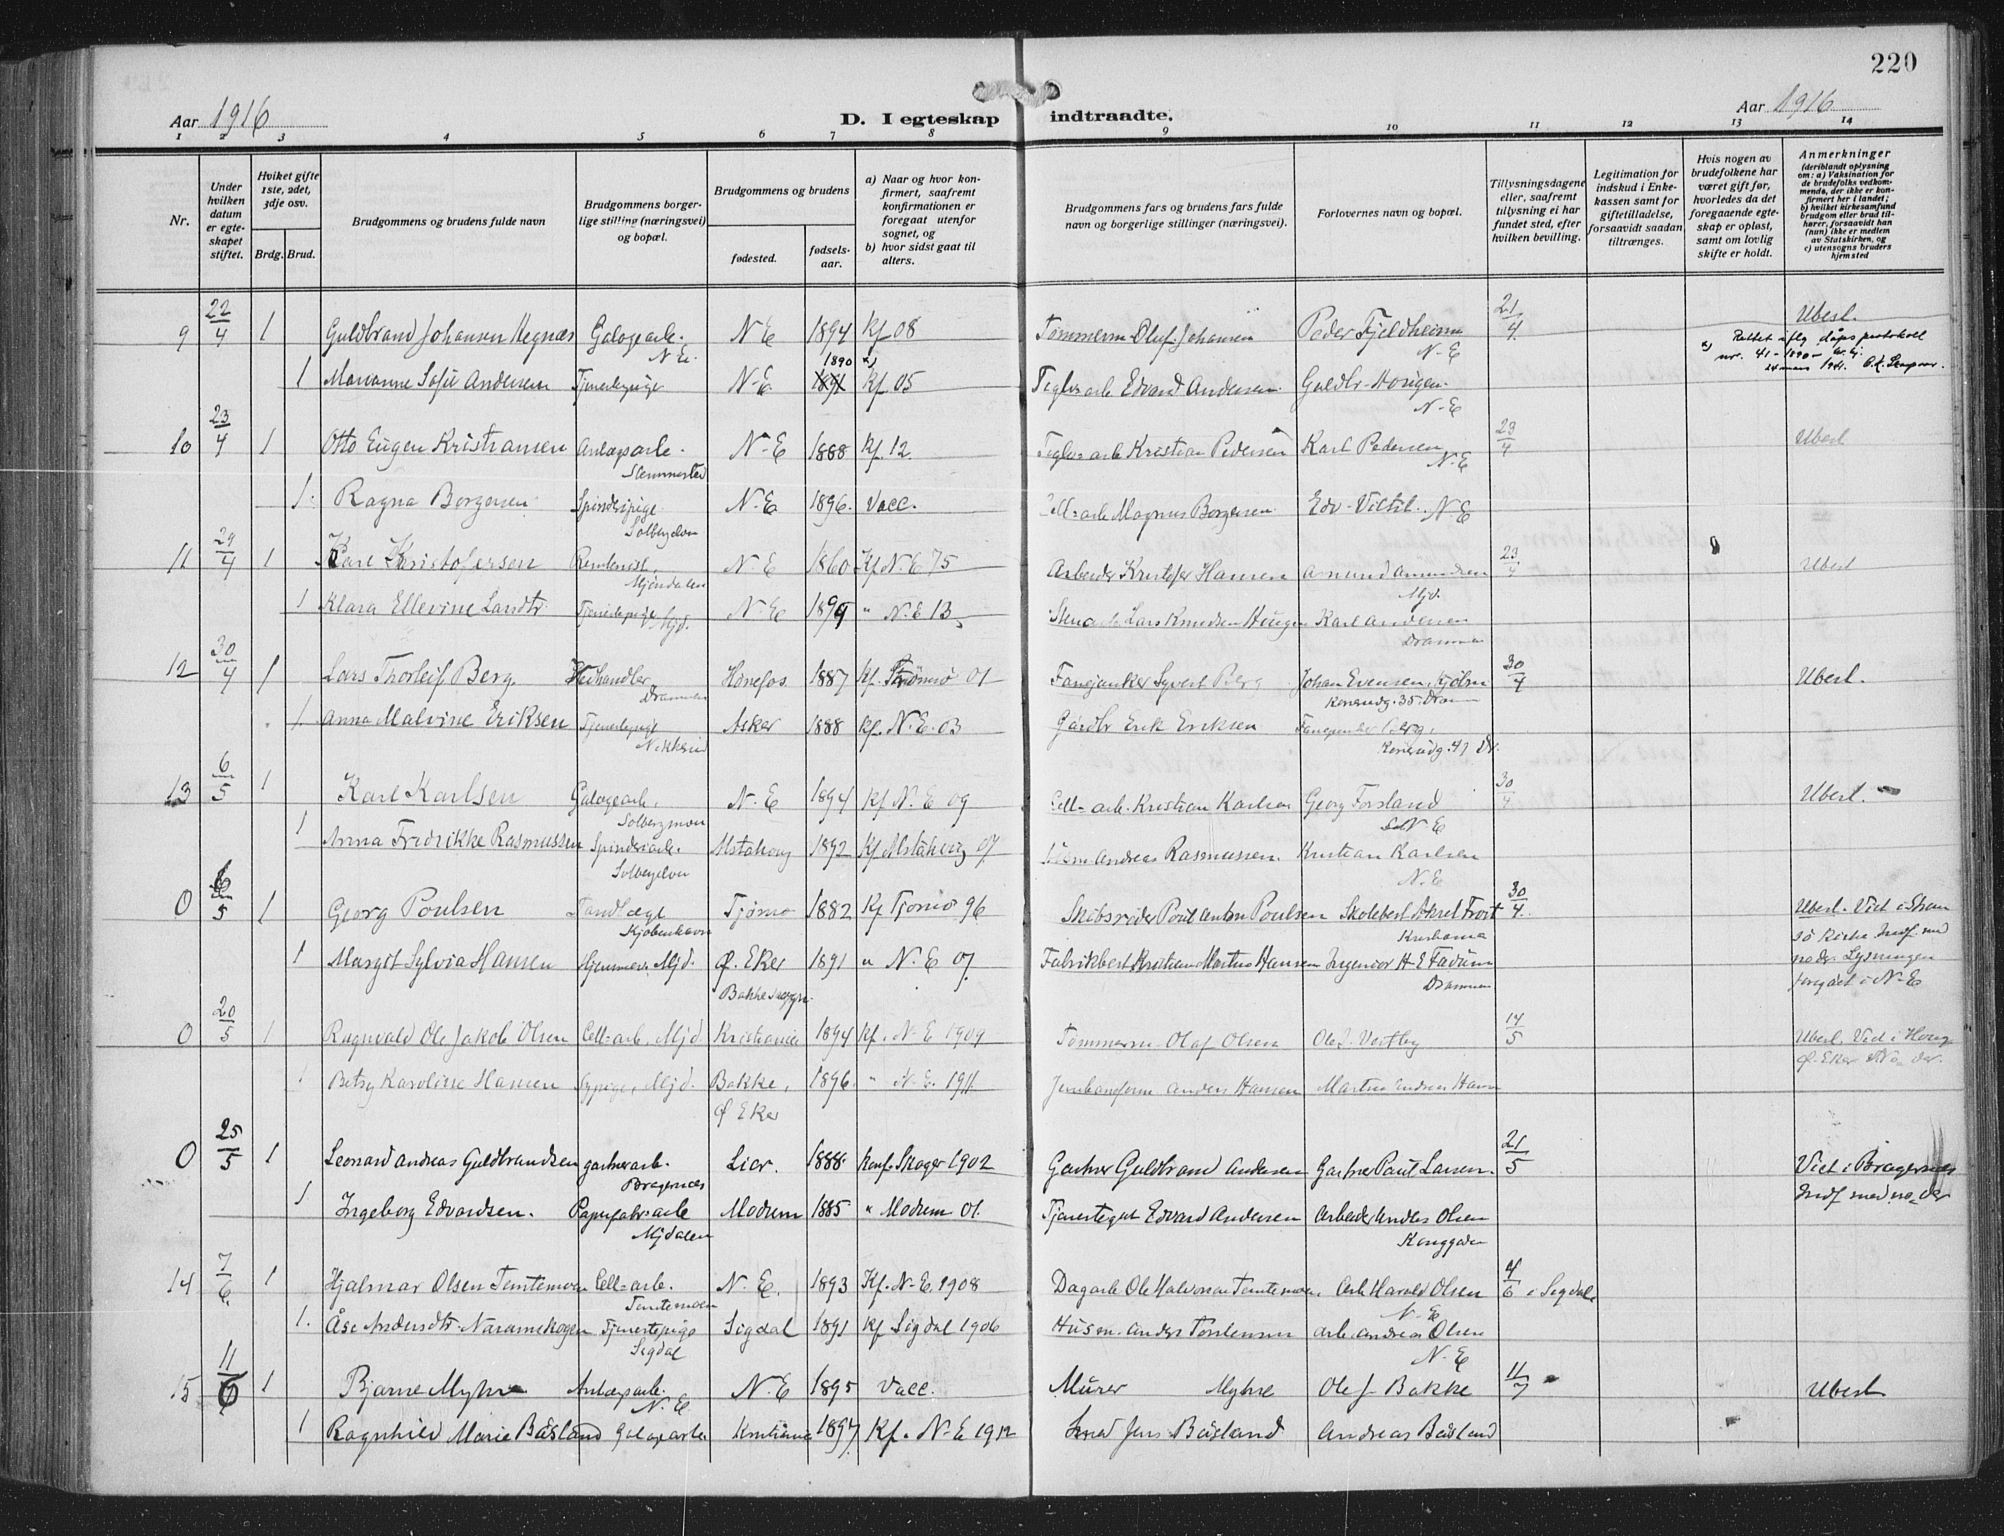 220
Aar 1916
D. I egteskap indtraadte.
Aar 1916
1 2 3 4 5 6 7 8 9 10 11 12 13 14
Nr.
Under hvilken datum er egteskapet stiftet.
Hvilket gifte 1ste, 2det, 3dje osv.
Brdg. Brud.
Brudgommens og brudens fulde navn
Brudgommens borgerlige stilling (næringsvei) og bopæl.
Brudgommens og brudens
fødested.
fødselsaar.
a) Naar og hvor konfirmert, saafremt konfirmationen er foregaat utenfor sognet, og
b) hvor sidst gaat til alters.
Brudgommens fars og brudens fars fulde navn og borgerlige stillinger (næringsvei).
Forlovernes navn og bopæl.
Tillysningsdagene eller, saafremt tillysning ei har fundet sted, efter hvilken bevilling.
Legitimation for indskud i Enkekassen samt for giftetilladelse, forsaavidt saadan tiltrænges.
Hvis nogen av brudefolkene har været gift før, hvorledes da det foregaaende egteskap er opløst, samt om lovlig skifte er holdt.
Anmerkninger (deriblandt oplysning om: a) Vaksination for de brudefolks vedkommende, der ikke er konfirmert her i landet; b) hvilket kirkesamfund brudgom eller brud tilhører, forsaavidt han (hun) ikke er medlem av Statskirken, og c) utensogns bruders hjemsted
9 22/4 1 Guldbrand Johansen Hegnæs Galogearb. N-E. N-E 1894 Kf 08 Tømmerm. Oluf Johansen Peder Fjeldheim N-E 21/4 Ubesl.
x) Rettet iflg dåpsprotokoll nr. 41 - 1890
1 Marianne Sofie Andersen Tjenestepige N-E. 1891 1890 x) Kf 05 Teglv. arb Edvard Andersen Guldbr. Horgen N-E
10 23/4 1 Otto Eugen Kristiansen Anlægsarb. Slemmestad N-E 1888 Kf. 12 Teglv. arb Kristian Pedersen Karl Pedersen N-E 23/4 Ubesl
1. Ragna Borgersen Spinderipige Solbergelven N-E 1896. Vacc. Cell-arb Magnus Borgersen Edv. N-E
11 29/4 1 Karl Kristofersen Mjøndalen N-E 1860 Kf N-E 75 Arbeider Kristofer Hansen Amund Amundsen Mjd. 23/4 Ubesl
1 Klara Ellevine Larsdtr Tjenestepige Mjd. N-E 1899 " N-E 13 Lars Knudsen Haugen Karl Andersen Drammen
12 30/4 1 Lars Thorleif Berg Vedhandler Drammen Hønefos 1887 Kf. Strømsø 01 Fanejunker Syvert Berg Johan Evensen 35 Dram 30/4 Ubesl.
1 Anna Malvine Eriksen Tjenestepige Asker 1888 Kf. N-E. 03 Gårdbr Erik Eriksen Fanejunker Berg
13 6/5 1 Karl Karlsen Galogearb. Solbergmoen N-E 1894 Kf N-E 09 Cell-arb. Kristian Karlsen Georg Forsland N-E 30/4 Ubesl.
1 Anna Fredrikke Rasmussen Spinderiarb. Solbergelven Alstahaug 1892 Kf Alstahaug 07 Andreas Rasmussen Kristian Karlsen N-E
0 6/5 1 Georg Poulsen Tandlæge Kjøbenhavn Tjømø 1882 Kf Tjømø 96 Skibsreder Poul Anton Poulsen Skolebest Aksel Frost Kristiania 30/4 Ubesl. Viet i Strømsø Kirke Indf. med no der. Lysningen foregået i N-E
1 Margit Sylvia Hansen Hjemmev. Mjd. Ø. Eker Bakke 1891 " N-E 07 Fabrikbest Kristian Martin Hansen Ingeniør H-E Favum Drammen
0 20/5 1 Ragnvald Ole Jakob Olsen Cell-arb. Mjd. Kristiania 1894 Kf. N-E 1909 Tømmerm Olaf Olsen Ole J. Vestby 14/5 Ubesl. Viet i Haug Ø. Eker No der.
1 Betsy Karoline Hansen Sypige, Mjd. Bakke, Ø Eker 1896 " N-E. 1911 Anders Hansen
0 25/5 1 Leonard Andreas Guldbrandsen gartnerarb. Bragernæs Lier. 1888 Konf. Skoger 1902 Gartner Guldbrand Andersen Gartner Paul Larsen 21/5 Viet i Bragernæs Indf med no der
1 Ingeborg Edvardsen. Papirfabr-arb Mjdalen Modum 1885 " Modum 01. Edvard Andersen Arbeider Anders Olsen
14 7/6 1 Hjalmar Olsen Temtemoen Cell-arb. Temtemoen N-E. 1893 Kf. N-E. 1908 Dagarb Ole Halvorsen Temtemoen Arb Harald Olsen N-E 4/6 i Sigdal
1. Åse Andersdtr. Tjenestepige Sigdal Sigdal 1891 Kf Sigdal 1906 Husm. Anders Torstensen arb. Andreas Olsen N-E
15 11/6 1 Bjarne Myhre Anlægsarb. N-E N-E 1895 Vacc. Murer Myhre Ole J. Bakke 11/7 Ubesl
1 Ragnhild Marie Båsland Galogearb Kristiania 1897 Kf. N-E 1912 Jens Båsland Andreas Båsland